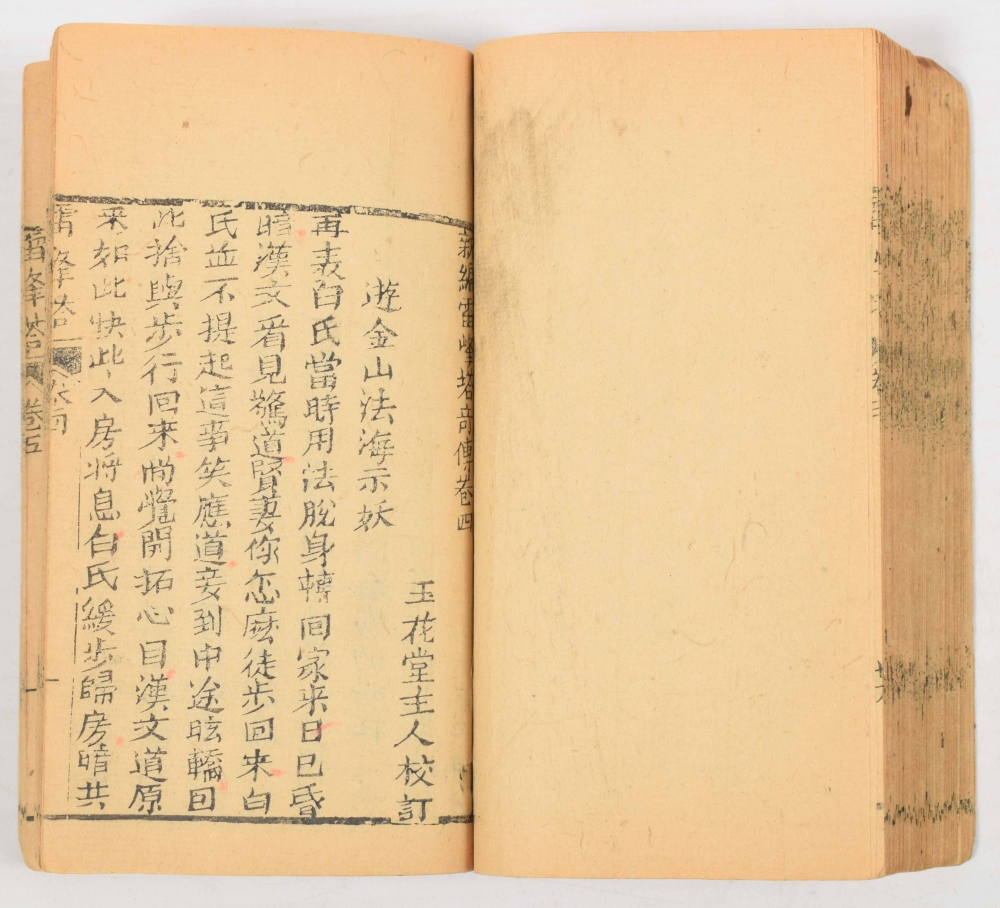 新編雷峰塔奇傳卷四
玉花堂主人校訂
遊金山法海示妖
再表白氏當時用法脫身轉回家来日已昏
暗漢文看見驚道賢妻你怎麽徒步回来白
氏並不提起這事笑應道妾到中途眩轎回
此捨與步行回来尚覺開拓心目漢文道原
来如此快此入房將息白氏緩步歸房暗共
雷峰塔 卷四
雷峰塔 卷五